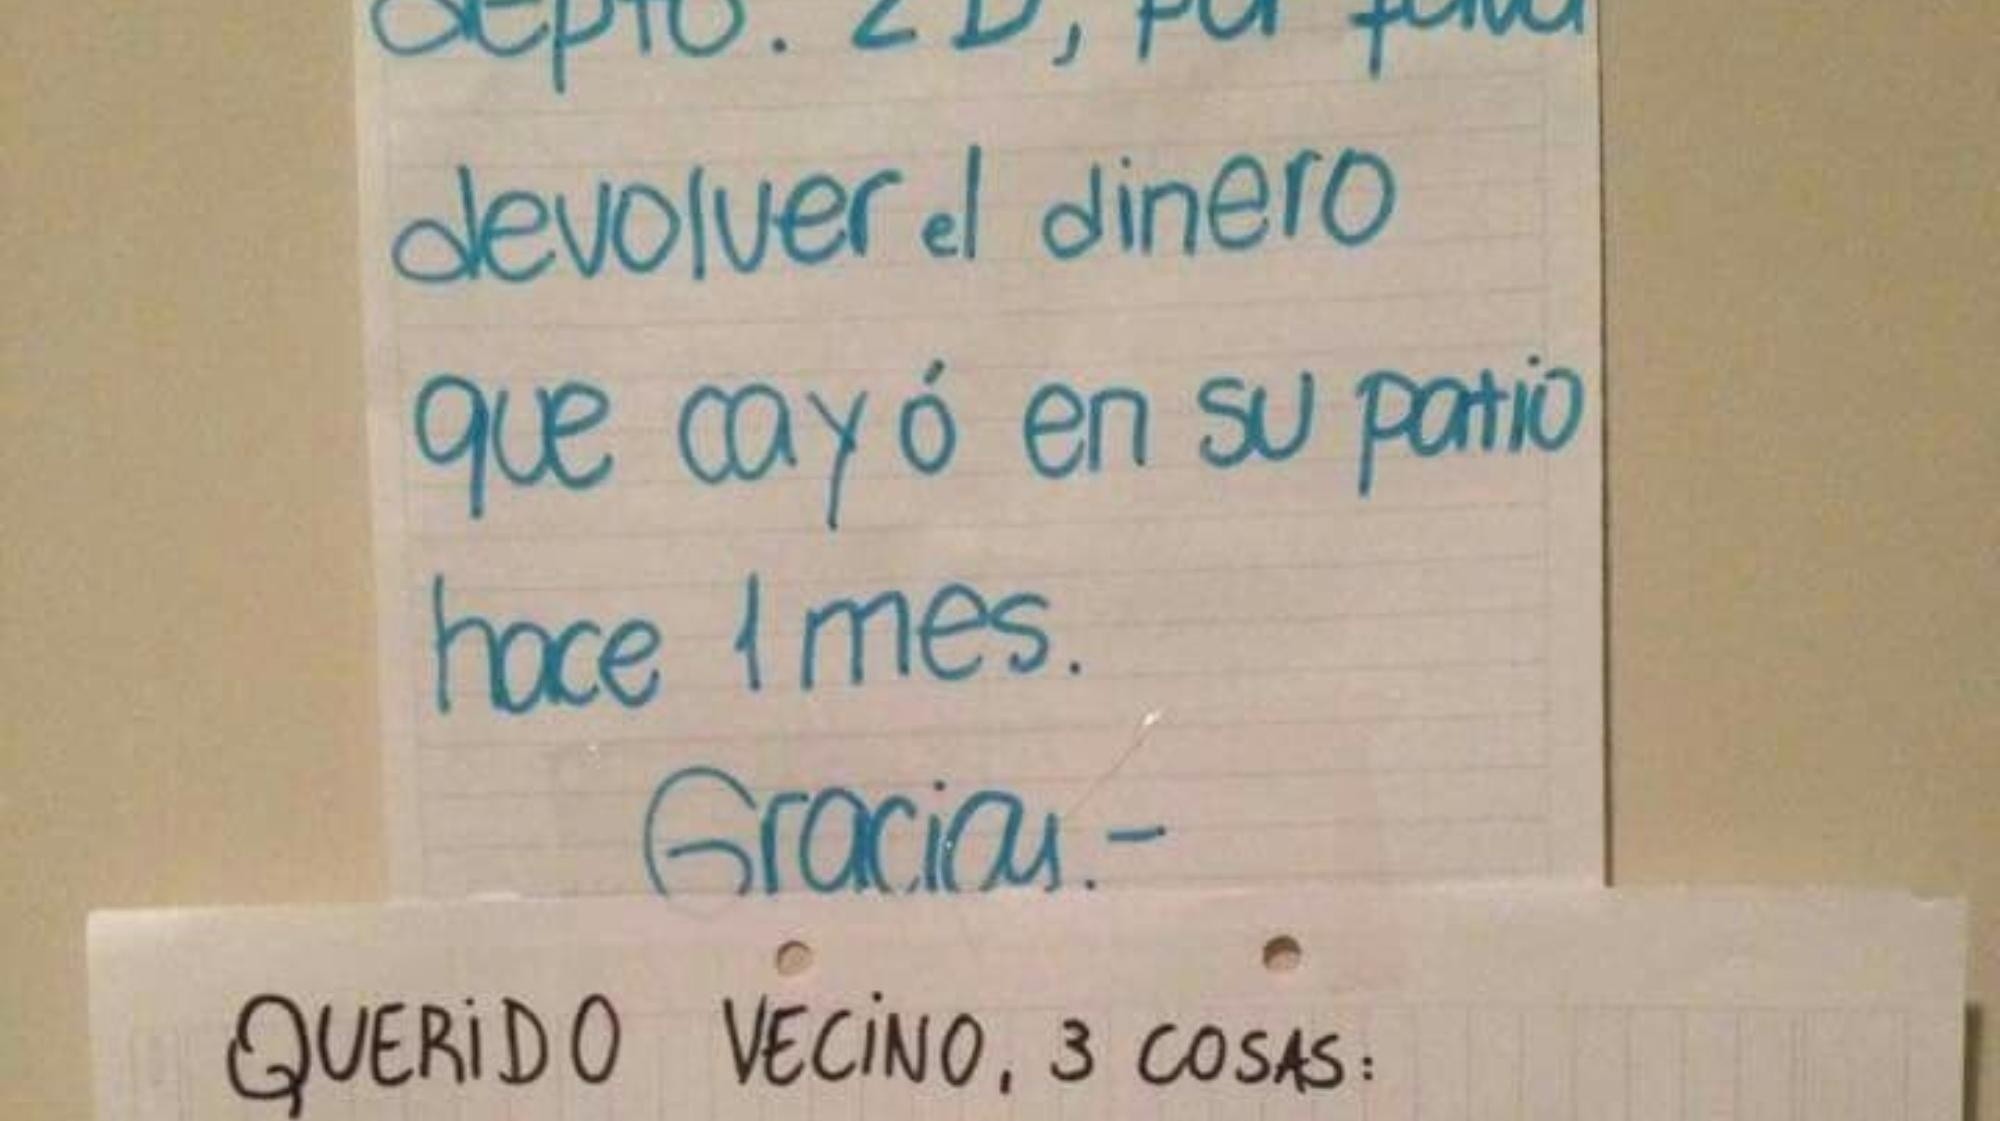 depto. 2D, por favor
devolver el dinero
que cayó en su patio
hace 1 mes.
Gracias.-
QUERIDO VECINO, 3 COSAS: